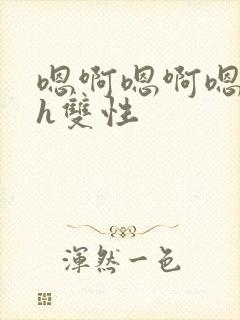 嗯啊嗯啊嗯
h雙性
渾然一色